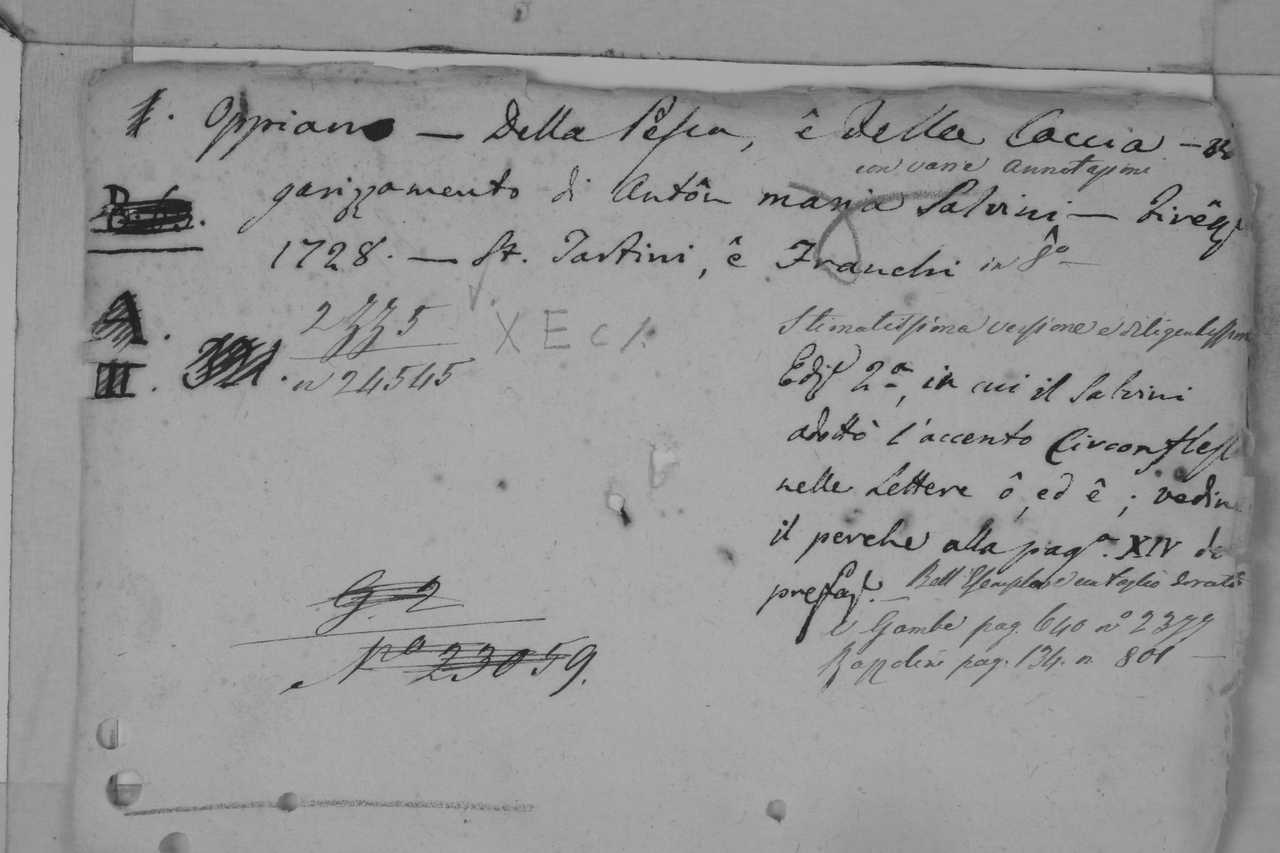 1. Oppiano — Della Pesca, ê Della Caccia —
con varie Annotazioni
garizzamento di Antôn maria Salvini — Firênz
1728. — St. Tartini, ê Franchi in 8º —
2335
n 24545
X E C
Stimatissima versione e diligentissim
Ediz 2ª, in cui il Salvini
adottò l'accento Circonfless
nelle Lettere ô, ed ê; vedine
il perche alla pagª. XIV de
prefaz. — Bell'Esemplare
e Gamba pag. 640 nº 2377
pag. 134. n 801 —
G. 2
Nº 23059.
A.
II.